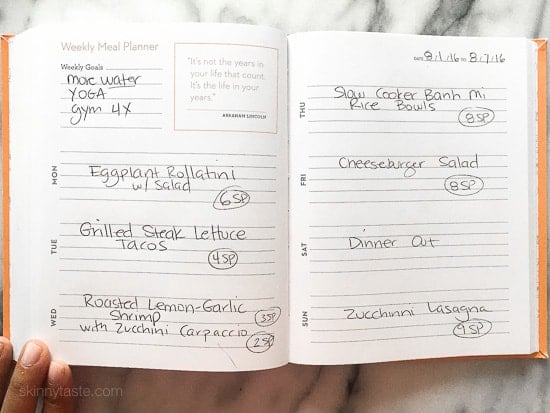 Weekly Meal Planner
Weekly Goals
more water
YOGA
Gym 4X
"It's not the years in
your life that count.
It's the life in your
years."
ABRAHAM LINCOLN
MON
Eggplant Rollatini
w/ Salad
6 SP
TUE
Grilled Steak Lettuce
Tacos
4 SP
WED
Roasted Lemon-Garlic
Shrimp
3 SP
with Zucchini Carpaccio
2 SP
DATE 8/1/16 TO 8/7/16
THU
Slow Cooker Banh Mi
Rice Bowls
8 SP
FRI
Cheeseburger Salad
8 SP
SAT
Dinner Out
SUN
Zucchinni Lasagna
9 SP
skinnytaste.com